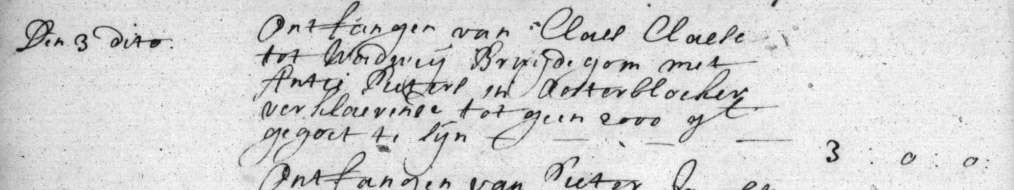 Den 3 dito. Ontfangen van Claes Claese
tot Woidwij Bruijdegom met
Antie Pieters in Oosterblocker
verklaerende tot geen 2000 gt
gegoet te sijn 3 : 0 : 0 :
Ontfangen van Pieter